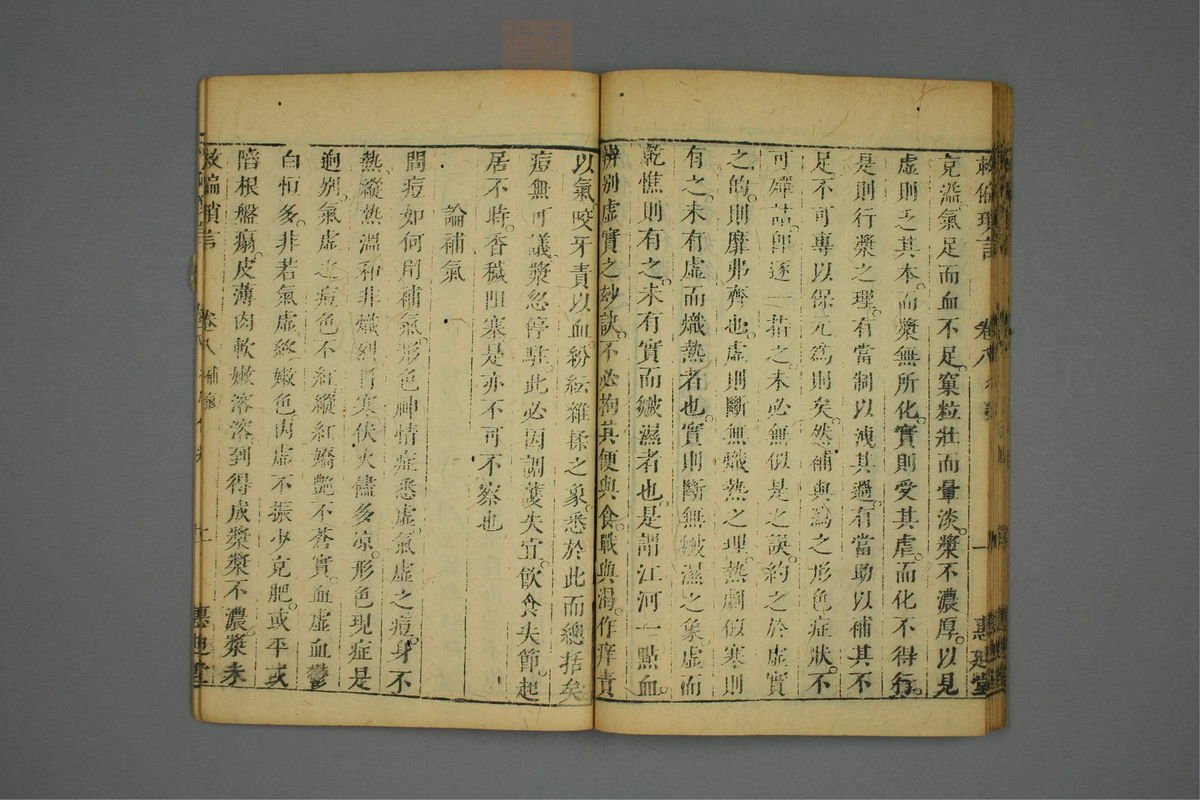 救偏瑣言 卷八
惠迪堂
充溢氣足而血不足窠粒壯而暈淡漿不濃厚以見
虛則乏其本而漿無所化實則受其虐而化不得行
是則行漿之理有當制以洩其過有當助以補其不
足不可專以保元為則矣然補與瀉之形色症狀不
可殫詰即逐一指之未必無似是之誤約之於虛實
之的則靡弗齊也虛則斷無熾熱之理熱劇似寒則
有之未有虛而熾熱者也實則斷無皴濕之象虛而
乾憔則有之未有實而皴濕者也是謂江河一點血
辨別虛實之妙訣不必拘其便與食職與渴作痒責
以氣咬牙責以血紛紜雜揉之象悉於此而總括矣
痘無可議漿忽停駐此必因調護失宜飲食失節起
居不時香穢阻塞是亦不可不察也
論補氣
問痘如何用補氣形色神情症悉虛氣虛之痘身不
熱縱熱溫和非熾烈胃寒伏火儘多凉形色現症是
迥別氣虛之痘色不紅縱紅嬌艷不蒼實血虛血鬱
白恒多非若氣虛終嫩色肉虛不振少克肥或平或
陷根盤瘍皮薄肉軟嫩溶溶到得成漿漿不濃漿未
救偏瑣言 卷八 補
惠迪堂